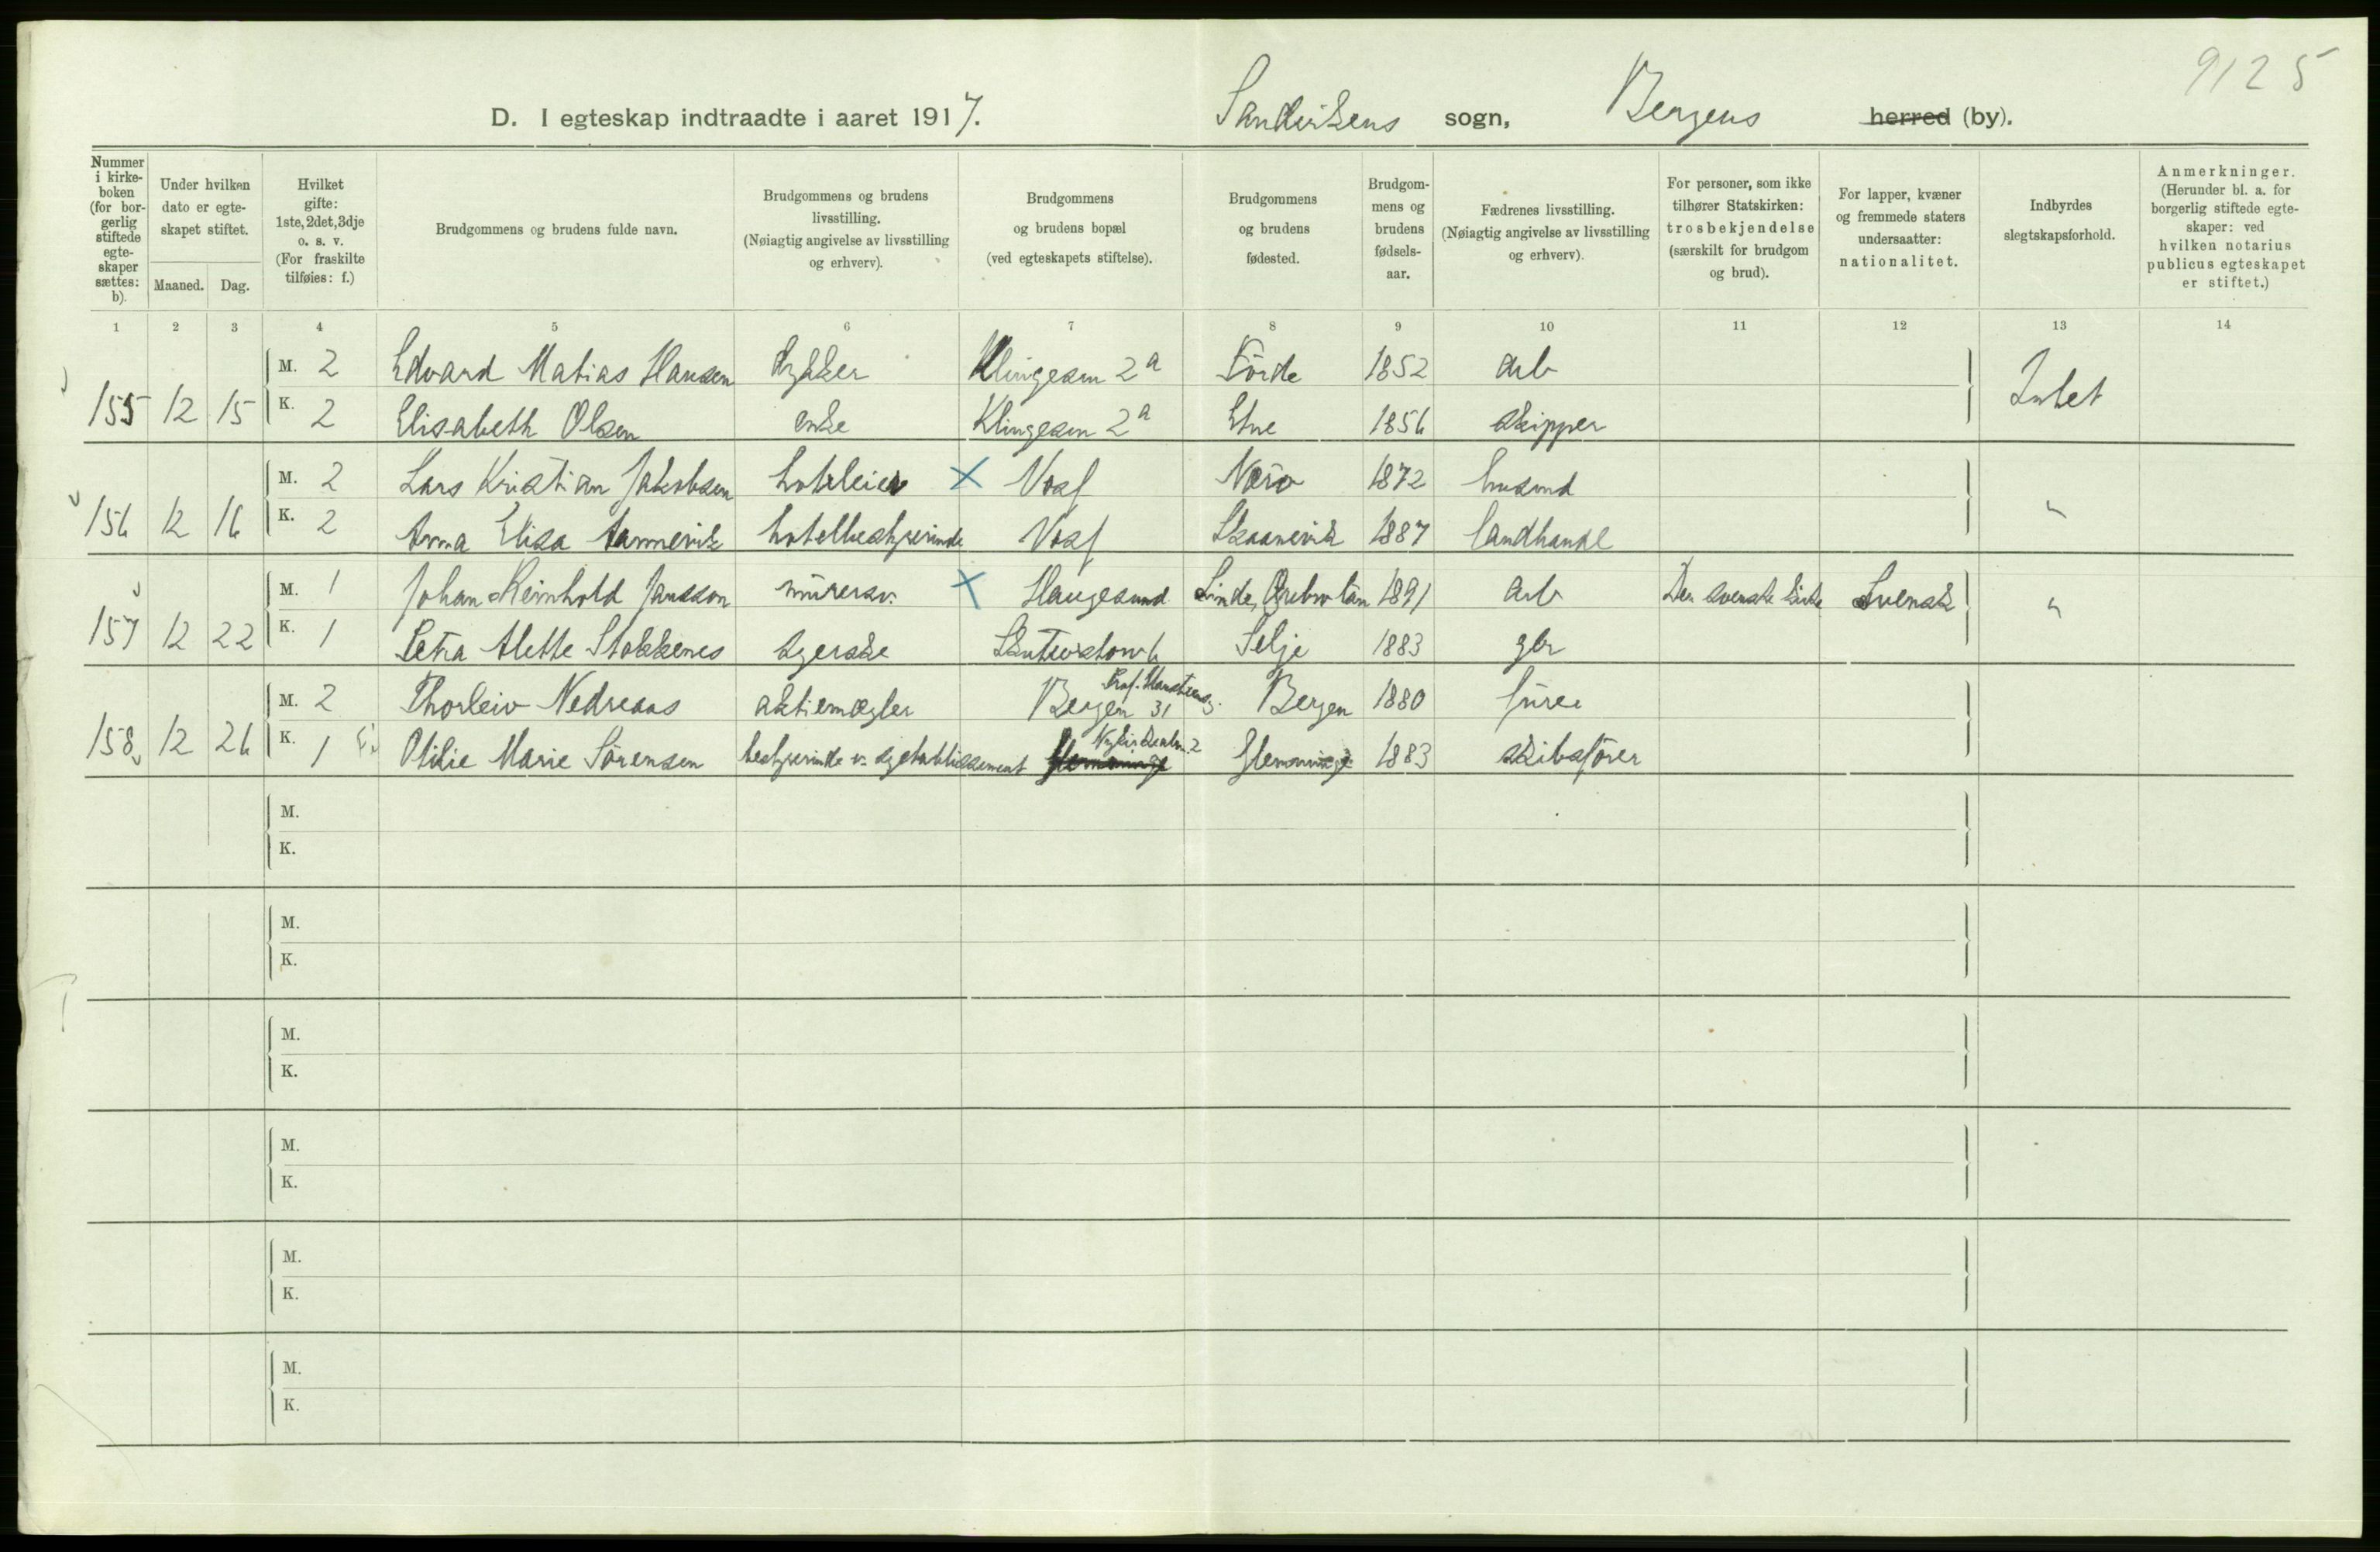 9125
D. I egteskap indtraadte i aaret 1917. Sandvikens sogn, Bergens herred (by).
Nummer i kirkeboken (for borgerlig stiftede egteskaper sættes: b).
Under hvilken dato er egteskapet stiftet.
Maaned. Dag.
Hvilket gifte: 1ste, 2det, 3dje o. s. v. (For fraskilte tilføies: f.)
Brudgommens og brudens fulde navn.
Brudgommens og brudens livsstilling. (Nøiagtig angivelse av livsstilling og erhverv).
Brudgommens og brudens bopæl (ved egteskapets stiftelse).
Brudgommens og brudens fødested.
Brudgommens og brudens fødselsaar.
Fædrenes livsstilling. (Nøiagtig angivelse av livsstilling og erhverv).
For personer, som ikke tilhører Statskirken: trosbekjendelse (særskilt for brudgom og brud).
For lapper, kvæner og fremmede staters undersaatter: nationalitet.
Indbyrdes slegtskapsforhold.
Anmerkninger. (Herunder bl. a. for borgerlig stiftede egteskaper: ved hvilken notarius publicus egteskapet er stiftet.)
1 2 3 4 5 6 7 8 9 10 11 12 13 14
M. 2 Edvard Matias Hansen dykker Klingesm 2a Förde 1852 arb
155 12 15 K. 2 Elisabeth Olsen enke Klingesm 2a Etne 1856 skipper Intet
M. 2 Lars Kristian Jakobsen hoteleier X Voss Nærö 1872 husmd
156 12 16 K. 2 Anna Elisa hotelbestyrerinde Voss Skaanevik 1887 landhandl "
M. 1 Johan Reinhold Jansson murersv. X Haugesund Linde, Örebro län 1891 arb Den svenske kirke Svensk
157 12 22 K. 1 Petra Alette Stokkenes syerske Selje 1883 gbr "
M. 2 Thorleiv Nedreaas aktiemægler Bergen Prof. Hansteensg. 31 Bergen 1880 furer
158 12 26 K. 1 Otilie Marie Sörensen bestyrerinde v. syetablissement Glemminge Nykirkealm. 2 Glemminge 1883 skibsförer
M.
K.
M.
K.
M.
K.
M.
K.
M.
K.
M.
K.